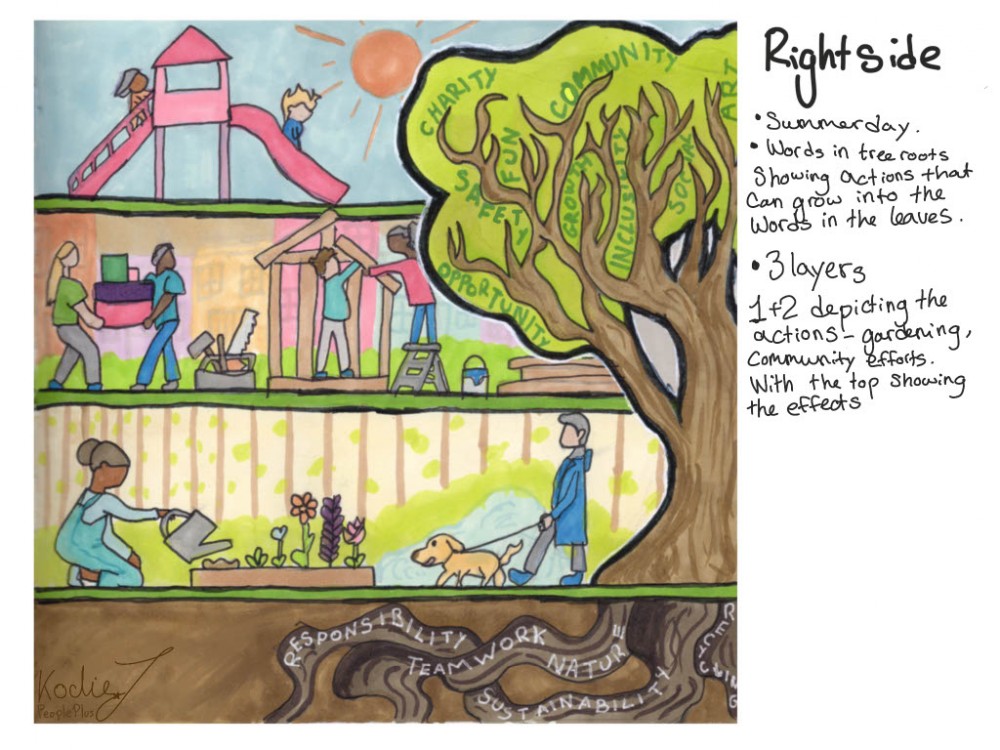 Right side
• Summer day.
• Words in tree roots
Showing actions that
Can grow into the
Words in the leaves.
• 3 layers
1+2 depicting the
actions - gardening,
Community efforts.
With the top showing
the effects
CHARITY
COMMUNITY
ART
FUN
SAFETY
GROWTH
INCLUSIBITY
OPPORTUNITY
RESPONSIBILITY
TEAMWORK
NATURE
SUSTAINABILITY
Kodie J
PeoplePlus